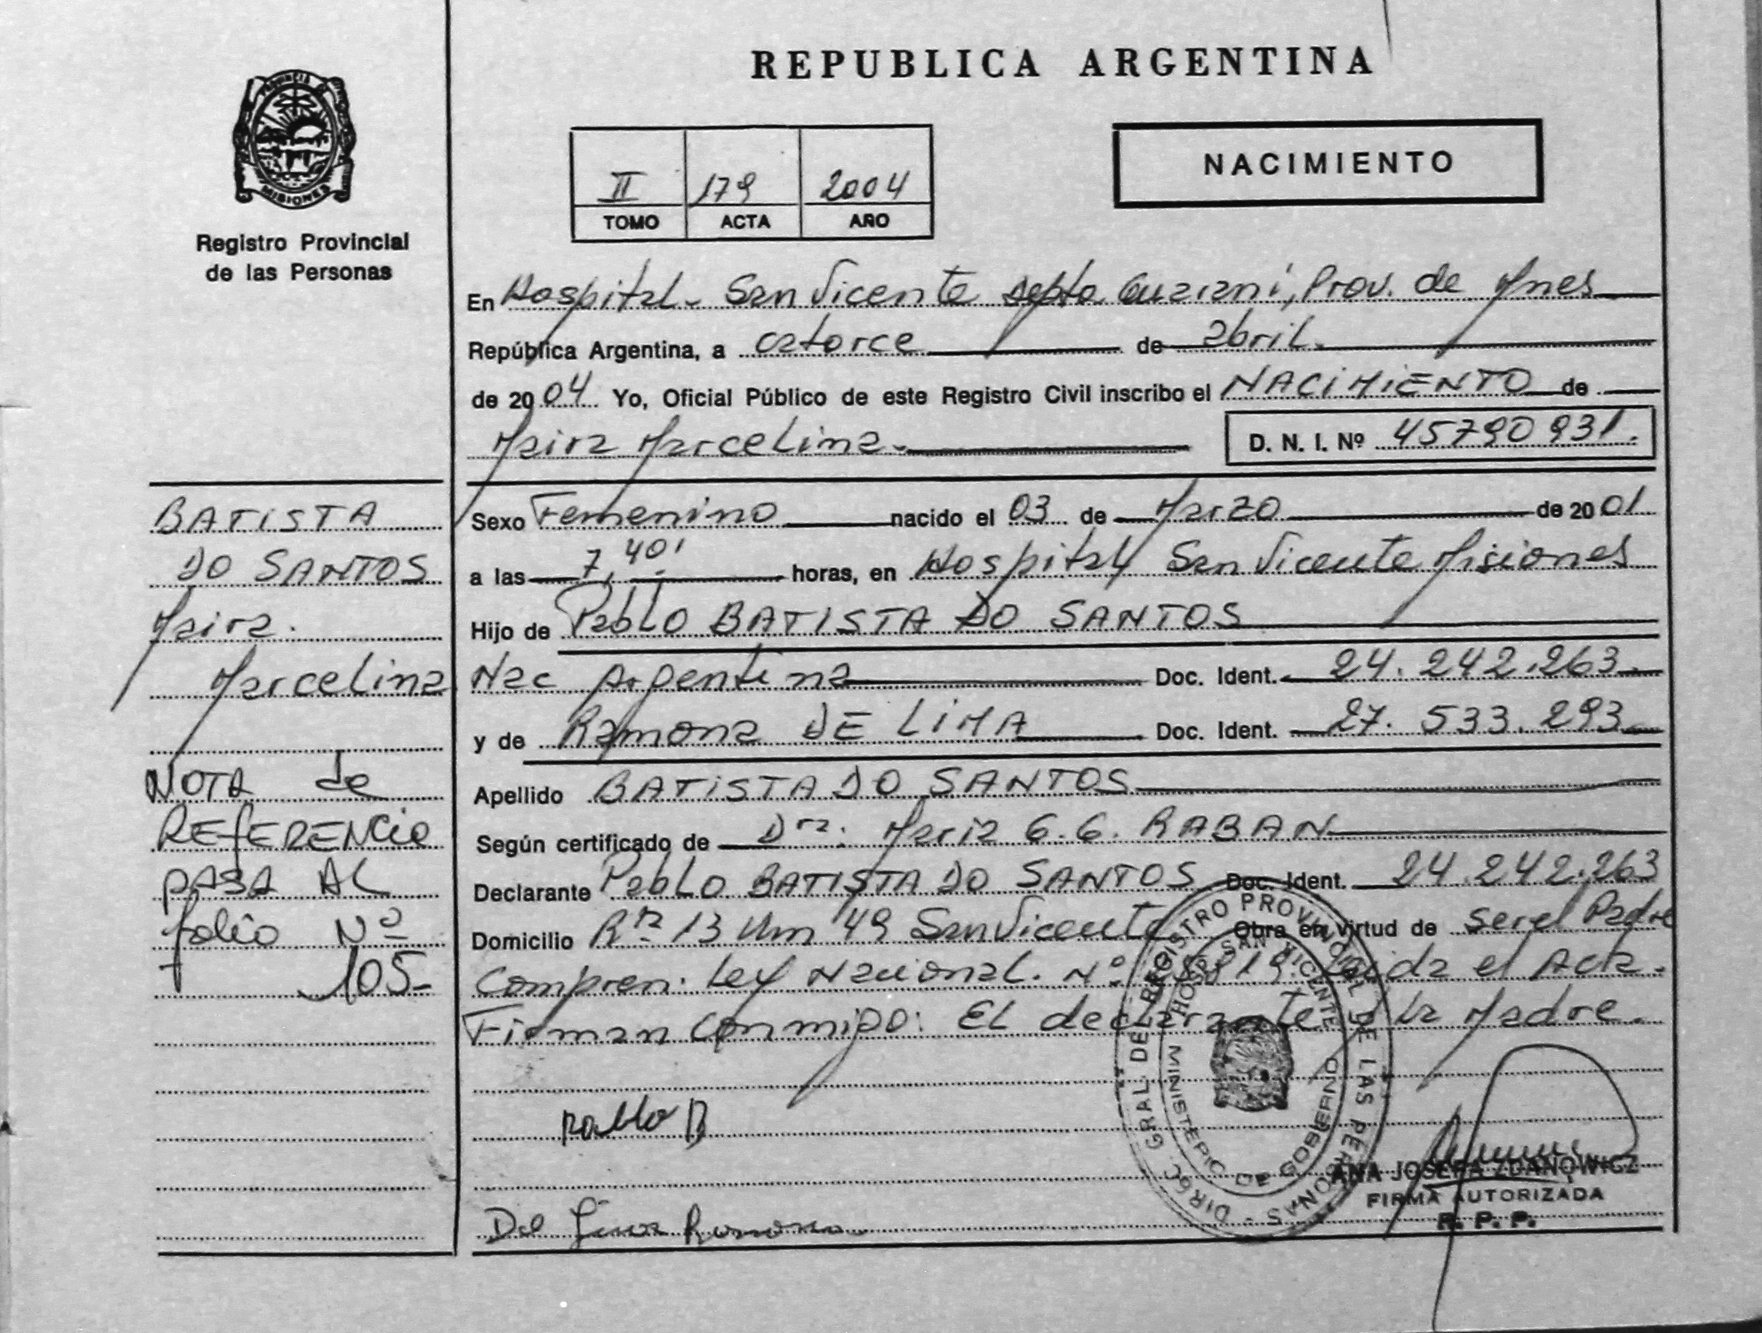 REPUBLICA ARGENTINA
PROVINCIA DE MISIONES
Registro Provincial
de las Personas
II 179 2004
TOMO ACTA AÑO
NACIMIENTO
En Hospital - San Vicente depto Guarani, Prov. de Mnes
República Argentina, a catorce de abril.
de 2004 Yo, Oficial Público de este Registro Civil inscribo el NACIMIENTO de
Maira Marcelina.
D. N. I. Nº 45790931.
BATISTA
DO SANTOS
Maira.
Marcelina
Sexo Femenino nacido el 03 de Marzo de 2001
a las 7,40' horas, en Hospital San Vicente Misiones
Hijo de Pablo BATISTA DO SANTOS
Nac Argentina Doc. Ident. 24.242.263.
y de Ramona DE LIMA Doc. Ident. 27.533.293
Apellido BATISTA DO SANTOS
Según certificado de Dra. Maria G. G. RABAN
Declarante Pablo BATISTA DO SANTOS Doc. Ident. 24.242.263
Domicilio Rta 13 Km 49 San Vicente Obra en virtud de ser el Padre
Compren. Ley Nacional. Nº 1819. Leida el Acta.
Firman Conmigo: El declarante y la Madre.
NOTA de
REFERENCIA
PASA AL
folio Nº
105-
Pablo B
De Lima Ramona
DIREC. GRAL DEL REGISTRO PROVINCIAL DE LAS PERSONAS
HOSP. SAN VICENTE
MINISTERIO DE GOBIERNO
ANA JOSEFA ZDANOWICZ
FIRMA AUTORIZADA
R. P. P.